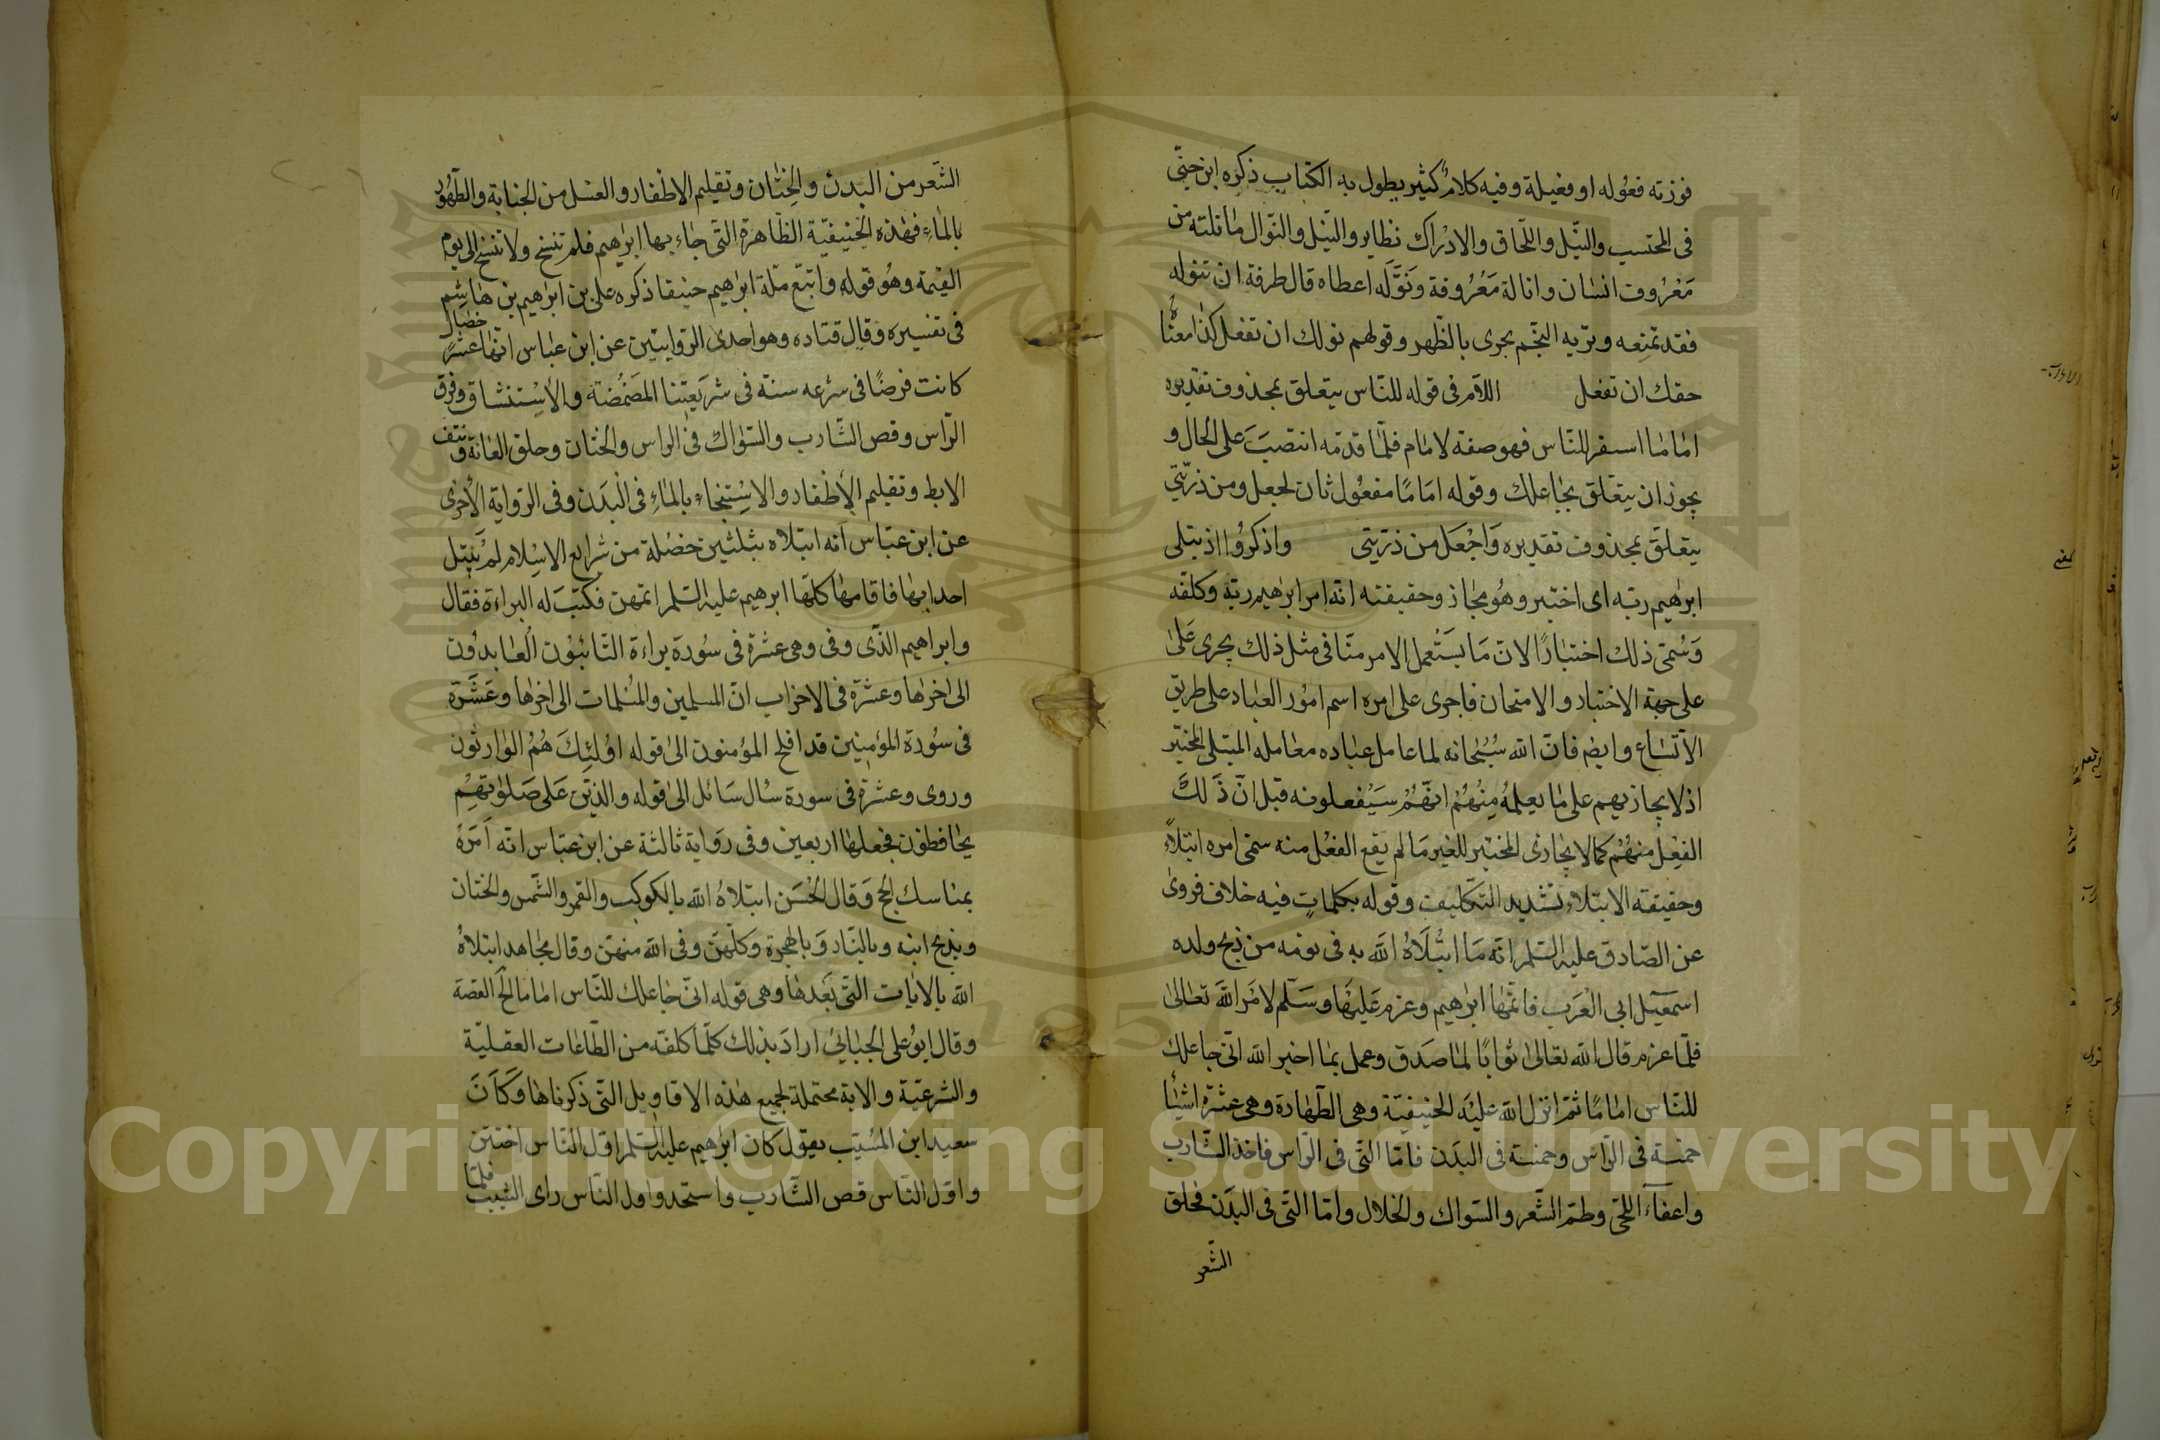 فوزنه فعوله او فعيلة وفيه كلام كثير يطول به الكتاب ذكره ابن جنى
فى المحتسب والنيل واللحاق والادراك نظاير والنيل والنوال ما نلته من
معروف انسان وانالة معروفة ونوّله اعطاه قال طرفة ان تنوله
فقد تمنعه وتريه النجم يجرى بالظهر وقولهم نولك ان تفعل كذا معناه
حقك ان تفعل اللام فى قوله للناس يتعلق بمحذوف تقديره
اماما استقر للناس فهو صفة لامام فلما قدمه انتصب على الحال و
يجوز ان يتعلق بجاعلك وقوله امامًا مفعول ثان لجعل ومن ذريتى
يتعلق بمحذوف تقديره واجعل من ذريتى واذكروا اذ ابتلى
ابرهيم ربه اى اختبر وهو مجاز وحقيقته انه امر ابرهيم ربه وكلفه
وسمى ذلك اختبارًا لان ما يستعمل الامر منا فى مثل ذلك يجرى على
على جهة الاختبار والامتحان فاجرى على امره اسم امور العباد على طريق
الاتساع وايضا فان الله سبحانه لما عامل عباده معامله المبتلى المختبر
اذ لا يجازيهم على ما يعلمه منهم انهم سيفعلونه قبل ان ذلك
الفعل منهم كما لا يجازى المختبر للغير ما لم يقع الفعل منه سمى امره ابتلاءً
وحقيقة الابتلاء تشديد التكليف وقوله بكلمات فيه خلاف فروى
عن الصادق عليه السلم انه ما ابتلاه الله به فى نومه من ذبح ولده
اسمعيل ابى العرب فاتمها ابرهيم وعزم عليها وسلم لامر الله تعالى
فلما عزم قال الله تعالى ثوابًا لما صدق وعمل بما اخبر الله انى جاعلك
للناس امامًا ثم انزل الله عليه الحنيفية وهى الطهارة وهى عشرة اشيا
خمسة فى الراس وخمسة فى البدن فاما التى فى الراس فاخذ الشارب
واعفاء اللحى وطم الشعر والسواك والخلال واما التى فى البدن فحلق
الشعر
الشعر من البدن والختان وتقليم الاظفار والغسل من الجنابة والطهور
بالماء فهذه الحنيفية الظاهرة التى جاء بها ابرهيم فلم تنسخ ولا تنسخ الى يوم
القيمة وهو قوله واتبع ملة ابرهيم حنيفا ذكره على بن ابرهيم بن هاشم
فى تفسيره وقال قتاده وهو احدى الروايتين عن ابن عباس انها عشر خصال
كانت فرضًا فى شرعه سنة فى شريعتنا المضمضة والاستنشاق وفرق
الراس وقص الشارب والسواك فى الراس والختان وحلق العانة ونتف
الابط وتقليم الاظفار والاستنجاء بالماء فى البدن وفى الرواية الاخرى
عن ابن عباس انه ابتلاه بثلثين خصلة من شرايع الاسلام لم يبتل
احدا بها فاقامها كلها ابرهيم عليه السلم اتمهن فكتب له البراءة فقال
وابراهيم الذى وفى وهى عشرة فى سورة براءة التائبون العابدون
الى اخرها وعشرة فى الاحزاب ان المسلمين والمسلمات الى اخرها وعشرة
فى سورة المؤمنين قد افلح المؤمنون الى قوله اولئك هم الوارثون
وروى وعشرة فى سورة سأل سائل الى قوله والذين على صلوتهم
يحافظون فجعلها اربعين وفى رواية ثالثة عن ابن عباس انه امره
بمناسك الحج وقال الحسن ابتلاه الله بالكوكب والقمر والشمس والختان
وبذبح ابنه وبالنار وبالهجرة وكلهن وفى الله منهن وقال مجاهد ابتلاه
الله بالايات التى بعدها وهى قوله انى جاعلك للناس اماما الى اخر القصة
وقال ابو على الجبائى اراد بذلك كلما كلفه من الطاعات العقلية
والشرعية والاية محتملة لجميع هذه الاقاويل التى ذكرناها وكان
سعيد ابن المسيب يقول كان ابرهيم عليه السلم اول الناس اختتن
واول الناس قص الشارب واستحد واول الناس راى الشيب فلما
Copyright © King Saud University